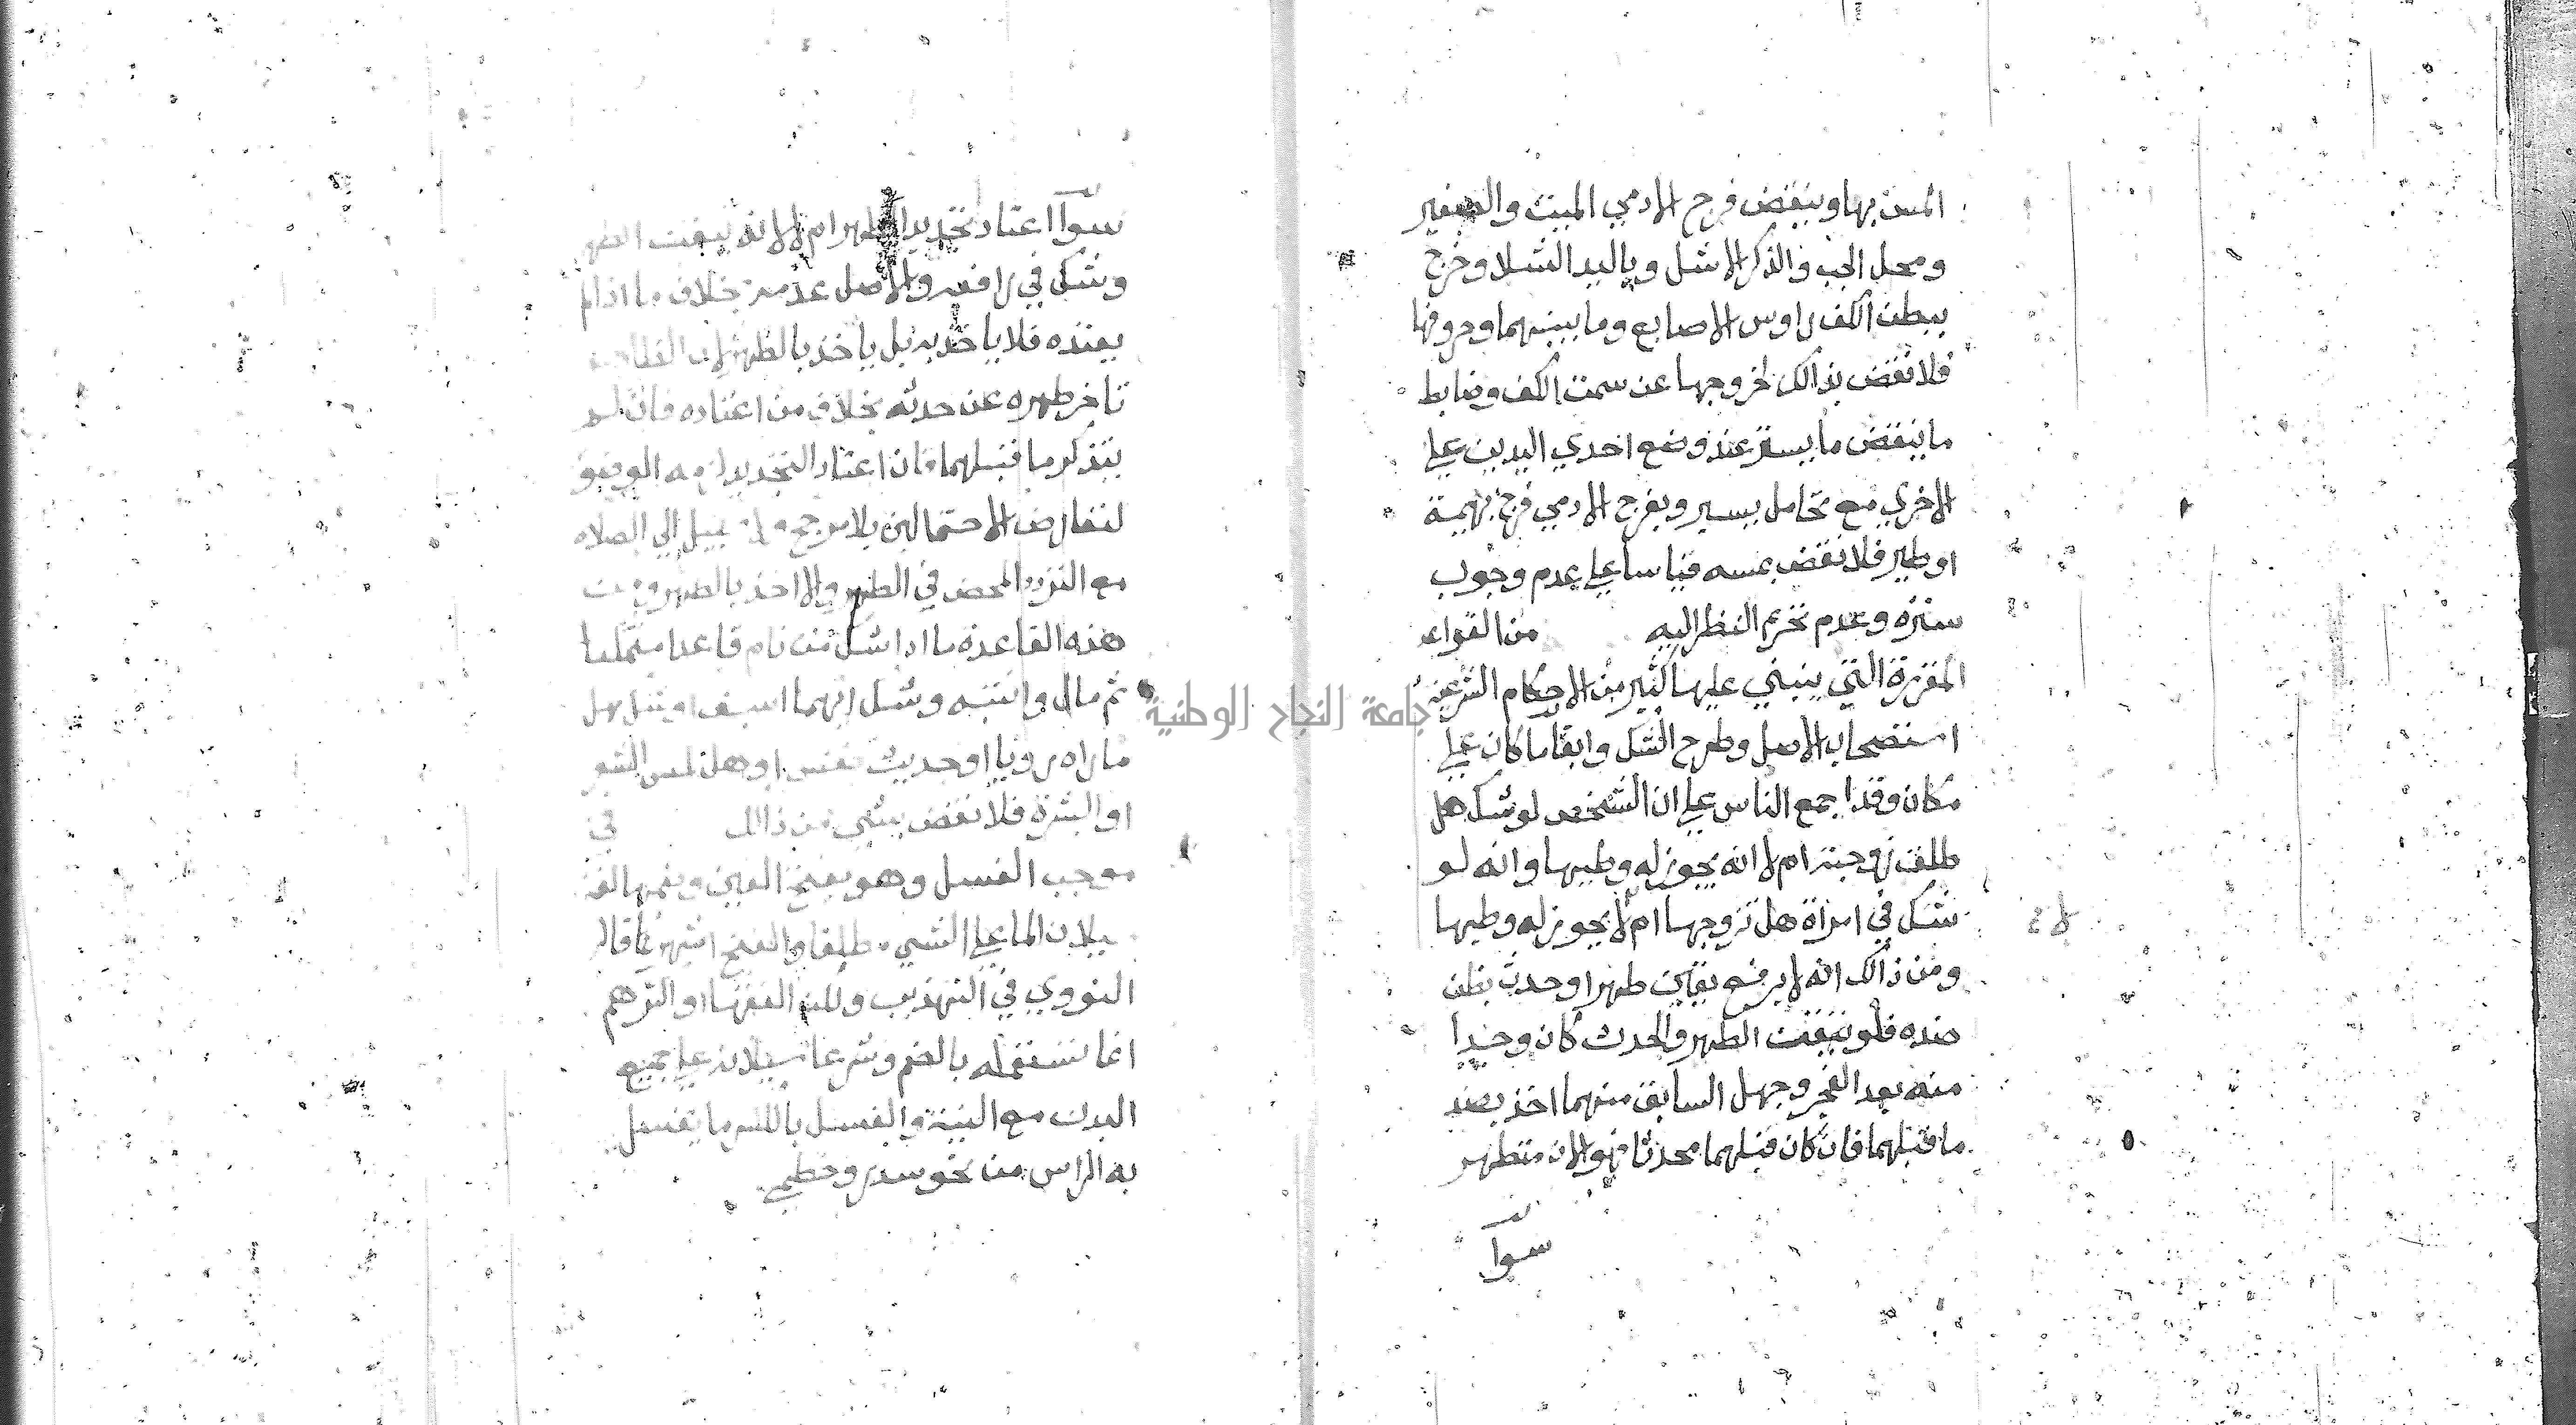 المس بها وينقض فرج الادمي الميت والصغير
ومحل الجب والذكر الاشل وباليد الشلا وخرج
ببطن الكف راوس الاصابع وما بينهما وحروفها
فلا نقض بذالك لخروجها عن سمت الكف وضابط
ما ينقض ما يستر عند وضع احدي اليدين علي
الاخري مع تحامل يسير وبفرج الادمي فرج بهيمة
او طير فلا نقض بمسه قياسا علي عدم وجوب
ستره وعدم تحريم النظر اليه من القواعد
المقررة التي ينبني عليها كثير من الاحكام الشرعية
استصحاب الاصل وطرح الشك وابقا ما كان علي
مكان وقد اجمع الناس علي ان الشخص لو شك هل
طلق زوجته ام لا انه يجوز له وطيها وانه لو
شك في امراة هل تزوجها ام لا يجوز له وطيها
لا
ومن ذالك انه لا يرفع يقين طهر او حدث بظن
ضده فلو تيقن الطهر والحدث كان وجدا
منه بعد الفجر وجهل السابق منهما اخذ بضد
ما قبلهما فان كان قبلهما محدثا فهو الان متطهر
سوا
سوا اعتاد تجديد الطهر ام لا لانه تيقن الطهر
وشك في رافعه والاصل عدمه بخلاف ما اذا لم
يعتده فلا ياخذ به بل ياخذ بالطهر لان الظاهر
تاخر طهره عن حدثه بخلاف من اعتاده فان لم
يتذكر ما قبلهما فان اعتاد التجديد لزمه الوضو
لتعارض الاحتمالين بلا مرجح ولا سبيل الي الصلاه
مع التردد المحض في الطهر والا اخذ بالطهر ومن
هذه القاعدة ما اذا شك من نام قاعدا متمكنا
ثم مال وانتبه وشك ايهما اسبق او شك هل
ما راه رويا او حديث نفس او هل لمس الشعر
او البشرة فلا نقض بشي من ذالك في
موجب الغسل وهو بفتح الغين وضمها لغة
سيلان الما علي الشي مطلقا والفتح اشهر كما قاله
النووي في التهذيب ولكن الفقها او اكثرهم
انما تستعمله بالضم وشرعا سيلانه علي جميع
البدن مع النية والغسل بالكسر ما يغسل
به الراس من نحو سدر وخطمي
جامعة النجاح الوطنية